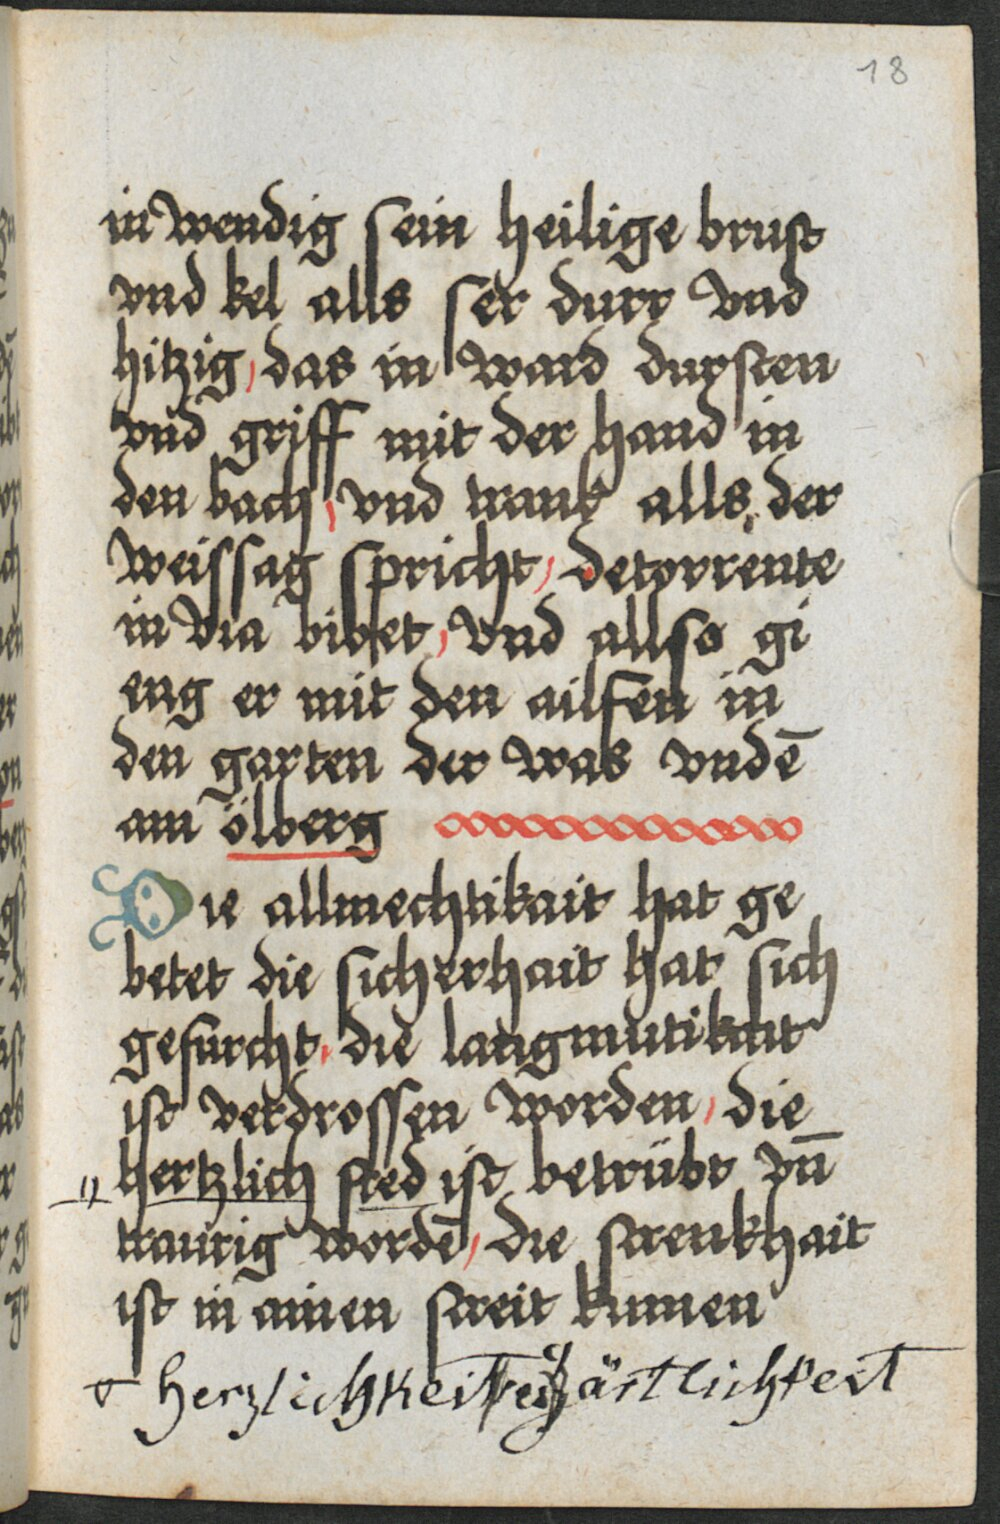 18
in wendig sein heilige brust
vnd kel alls ser durr vnd
hitzig, das in ward dursten
vnd griff mit der hand in
den bach, vnd trank alls der
weissag spricht, detorrente
in via bibet, vnd allso gi
eng er mit den ailfen in
den garten der was vndē
am ölberg
Die allmechtikait hat ge
betet die sicherhait hat sich
gefurcht, die langmutikait
ist verdrossen worden, die
hertzlich fred ist betrübt vn̄
traurig wordē, die strenkhait
ist in ainen streit kumen
herzlichkeit zärtlichkeit